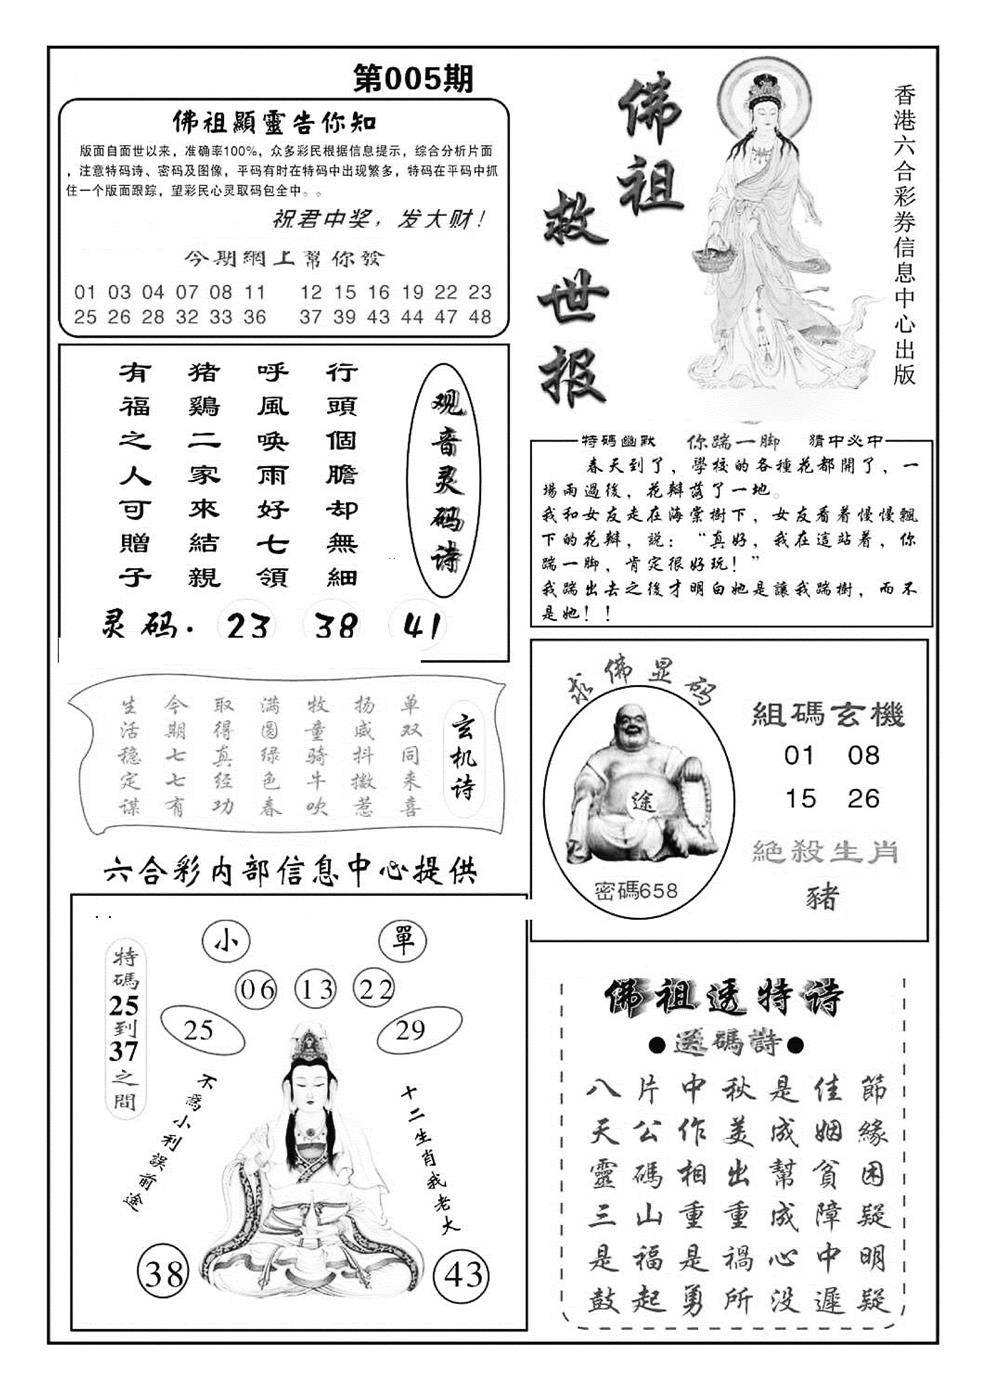 第005期
佛祖顯靈告你知
版面自面世以来，准确率100%，众多彩民根据信息提示，综合分析片面
，注意特码诗、密码及图像，平码有时在特码中出现繁多，特码在平码中抓
住一个版面跟踪，望彩民心灵取码包全中。。
祝君中奖，发大财！
今期網上幫你發
01 03 04 07 08 11 12 15 16 19 22 23
25 26 28 32 33 36 37 39 43 44 47 48
佛祖
救世报
香港六合彩券信息中心出版
观音灵码诗
行頭個膽却無細
呼風唤雨好七領
猪鷄二家來結親
有福之人可贈子
灵码. 23 38 41
特碼幽默 你踹一脚 猜中必中
春天到了，學校的各種花都開了，一
場雨過後，花瓣落了一地。
我和女友走在海棠樹下，女友看着慢慢飄
下的花瓣，説：“真好，我在這站着，你
踹一脚，肯定很好玩！”
我踹出去之後才明白她是讓我踹樹，而不
是她！！
玄机诗
单双同来喜
扬威抖擞惹
牧童骑牛吹
满园绿色春
取得真经功
今期七七有
生活稳定谋
六合彩内部信息中心提供
求佛显码
途
密碼658
組碼玄機
01 08
15 26
絶殺生肖
豬
特碼25到37之間
小 單
06 13 22
25 29
不爲小利誤前途
十二生肖我老大
38 43
佛祖透特诗
●透碼詩●
八片中秋是佳節
天公作美成姻緣
靈碼相出幫貧困
三山重重成障疑
是福是禍心中明
鼓起勇所没遲疑